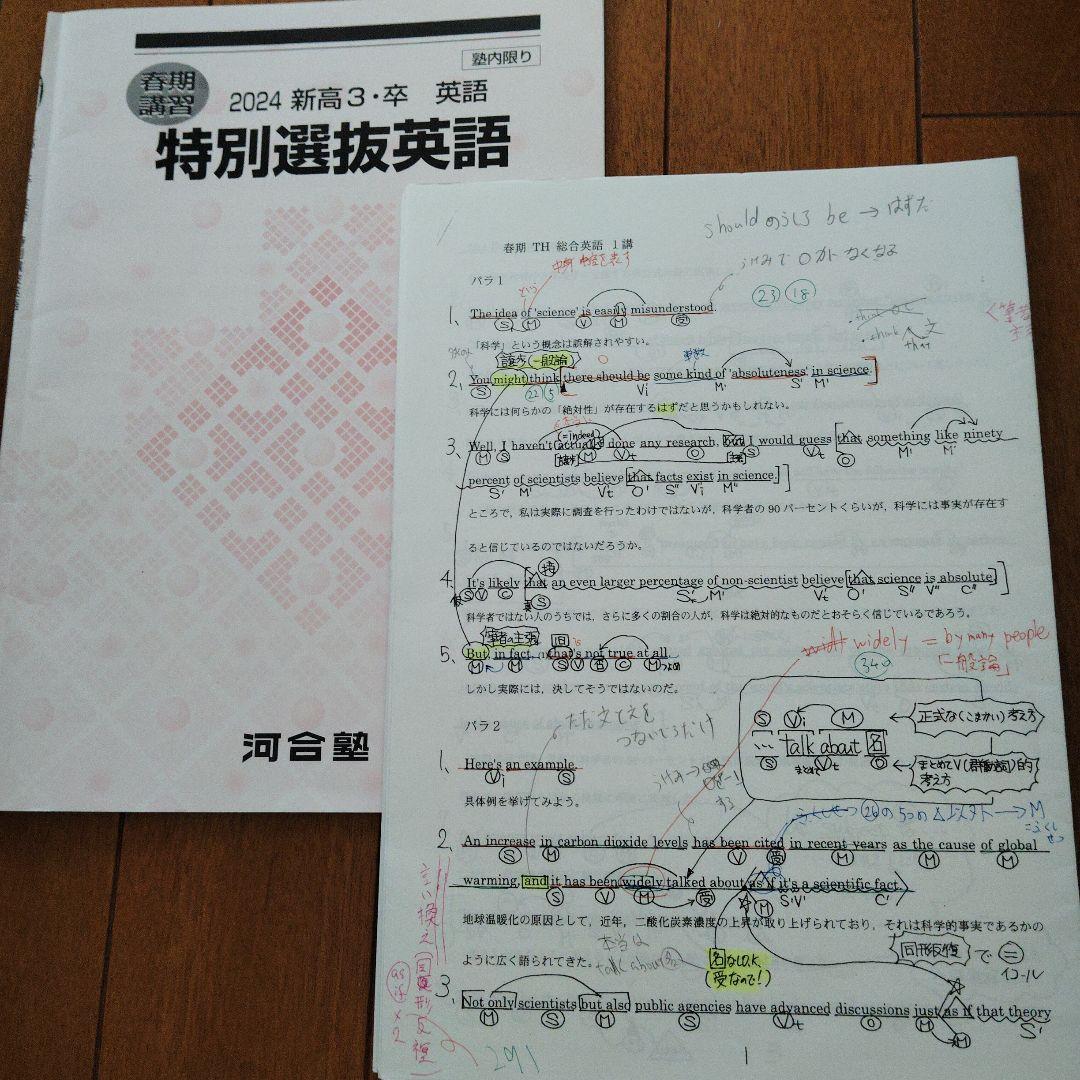 塾内限り
春期
講習
2024 新高3・卒 英語
特別選抜英語
河合塾
shouldのうしろ be → はずだ
春期 TH 総合英語 1講
うけみで Oが1個なくなる
パラ1
という
1、The idea of 'science' is easily misunderstood.
S M V M 受
23 18
「科学」という概念は誤解されやすい。
譲歩 一般論
2、You might think [there should be some kind of 'absoluteness' in science.]
S 22 5 Vi M' S' M'
科学には何らかの「絶対性」が存在するはずだと思うかもしれない。
(=indeed)
3、Well, I haven't actually done any research, but I would guess [that something like ninety
M S 譲歩 M Vt O 主張 S Vt O M' M'
percent of scientists believe [that facts exist in science.]]
S' M' Vt O' S" Vi M"
ところで，私は実際に調査を行ったわけではないが，科学者の 90 パーセントくらいが，科学には事実が存在す
ると信じているのではないだろうか。
接
4. It's likely [that an even larger percentage of non-scientist believe [that science is absolute.]]
仮 S V C 真 S S' M' Vt O' S" V" C"
科学者ではない人のうちでは，さらに多くの割合の人が，科学は絶対的なものだとおそらく信じているであろう。
筆者の主張
5、But, in fact, that's not true at all.
M M S V 否 C M つよめ
widely = by many people
「一般論」
340
しかし実際には，決してそうではないのだ。
パラ2
ただ文と文を
つないでるだけ
1、Here's an example.
Vi S
具体例を挙げてみよう。
S Vi M ← 正式な(こまかい)考え方
… talk about 名
S まとめて Vt O ← まとめてV(群動詞)的
考え方
2、An increase in carbon dioxide levels has been cited in recent years as the cause of global
S M V 受 M M M
warming, and it has been widely talked about as if it's a scientific fact.
S V M 受 M S'V' C'
地球温暖化の原因として，近年，二酸化炭素濃度の上昇が取り上げられており，それは科学的事実であるかの
ように広く語られてきた。
本当は
talk about 名
名なしO.K.
(受なので!)
同形反復 で =
イコール
言い換え
as if ×2
3、Not only scientists but also public agencies have advanced discussions just as if that theory
M S M S Vt O M M S'
291
1